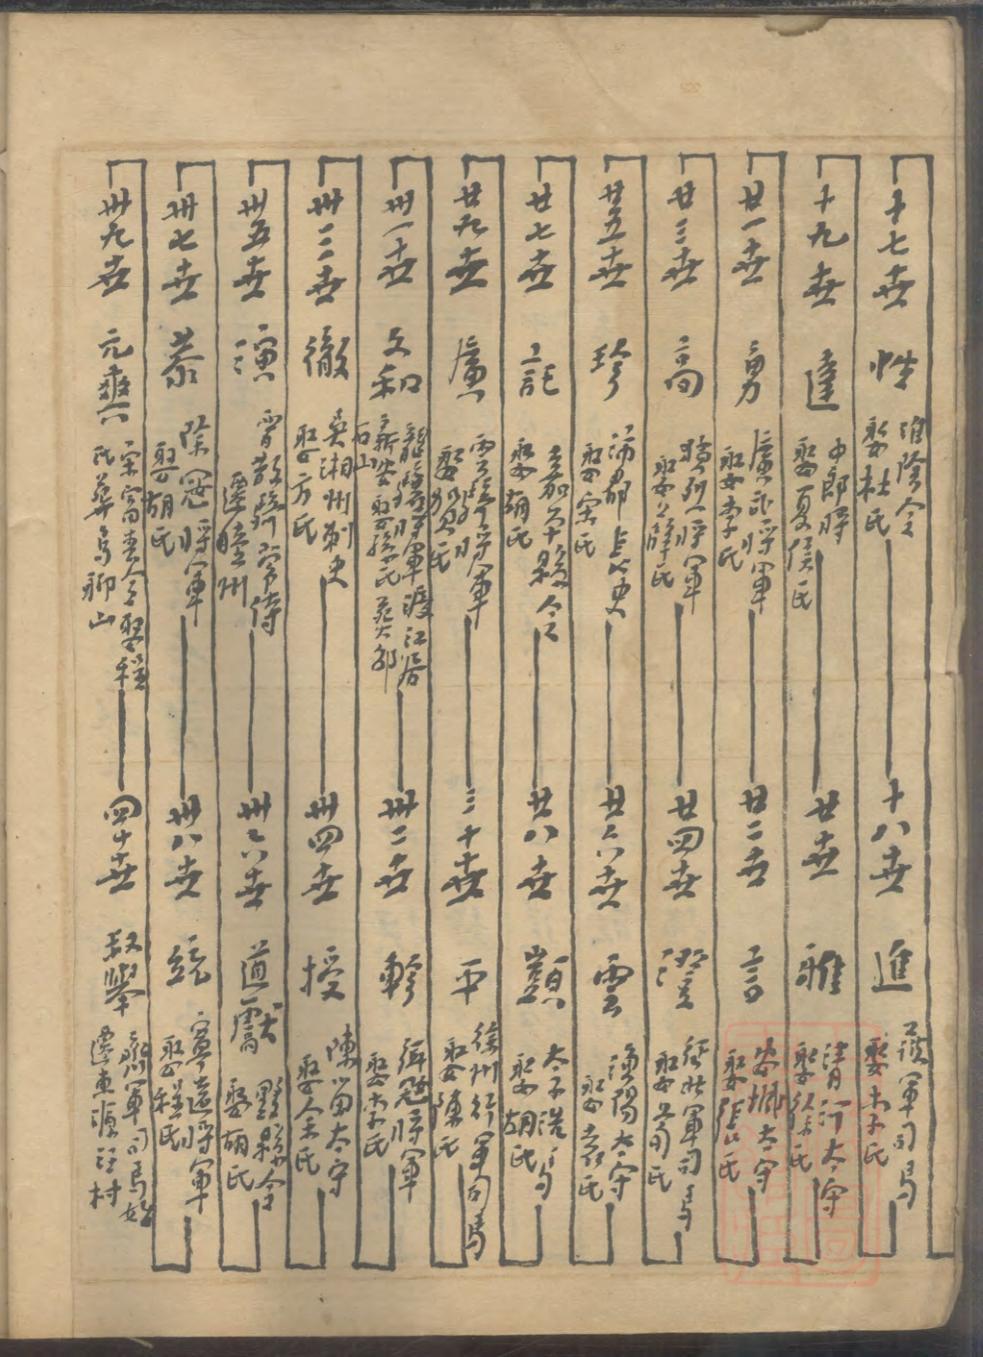 十七世 性 淮陰令
娶杜氏
十八世 進 護軍司馬
娶李氏
十九世 達 中郎將
娶夏侯氏
廿世 雅 清河太守
娶徐氏
廿一世 勇 廣武將軍
娶李氏
廿二世 言 太守
娶張氏
廿三世 高 將軍
娶薛氏
廿四世 澄 征北軍司馬
娶
廿五世 珍 沛郡長史
娶宋氏
廿六世 雲 漁陽太守
娶袁氏
廿七世 託 嘉平縣令
娶胡氏
廿八世 顗 太子洗馬
娶胡氏
廿九世 廉 將軍
娶賀氏
三十世 平 徐州行軍司馬
娶陳氏
卅一世 文和 龍驤將軍渡江居
新安娶孫氏葬
石山
卅二世 軫 輔冠將軍
娶李氏
卅三世 徹 湘州刺史
娶方氏
卅四世 授 陳留太守
娶余氏
卅五世 演 散騎常侍
遷睦州
卅六世 道獻 黟縣令
娶胡氏
卅七世 恭 除冠將軍
娶胡氏
卅八世 統 寧遠將軍
娶程氏
卅九世 元爽 宋富春令娶程
氏葬烏聊山
四十世 叔舉 齊軍司馬始
遷東源汪村